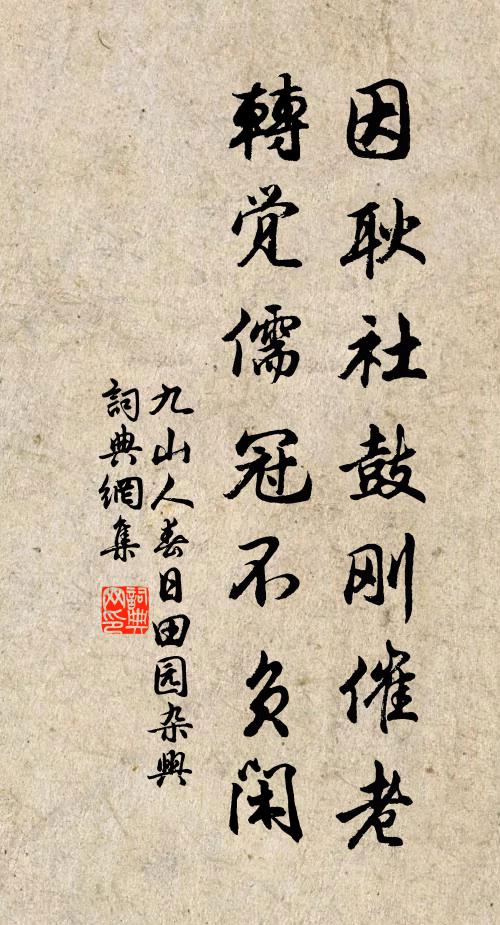 因耿社鼓刚催老
轉觉儒冠不负闲
九山人春日田园杂興
詞典網集
詞典网印